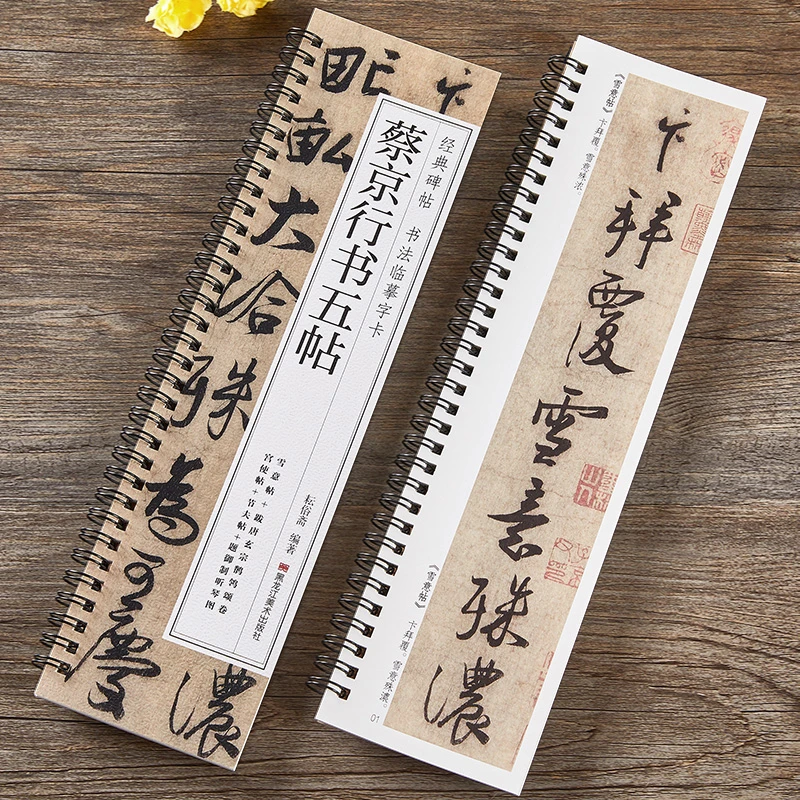 经典碑帖 书法临摹字卡
蔡京行书五帖
雪意帖+跋唐玄宗鹡鸰颂卷
宫使帖+节夫帖+题御制听琴图
耘俗斋 编著
黑龙江美术出版社
卞
濃
大洽殊為慶
《雪意帖》 卞拜覆。雪意殊浓。
卞拜覆雪意殊濃
《雪意帖》 卞拜覆。雪意殊濃。
01